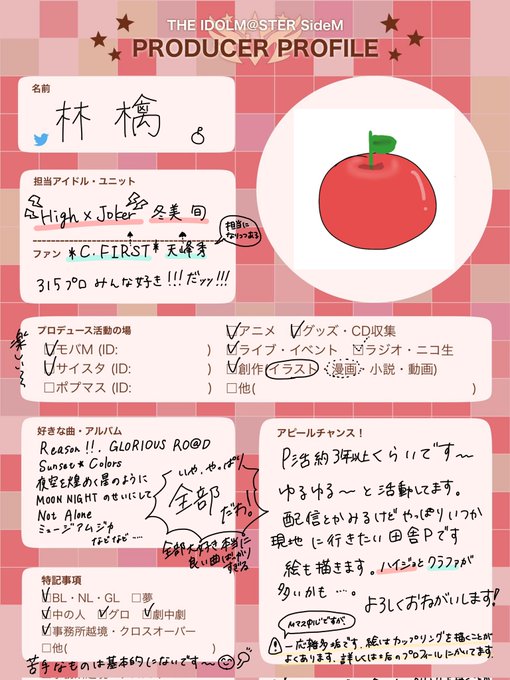 THE IDOLM@STER SideM
PRODUCER PROFILE
名前
林檎
担当アイドル・ユニット
High×Joker 冬美 旬
ファン *C.FIRST* 天峰秀
担当に
なりつつある
315プロ みんな好き!!!だッッ!!!
プロデュース活動の場
楽しい〜
モバM (ID: )
サイスタ (ID: )
ポプマス (ID: )
アニメ グッズ・CD収集
ライブ・イベント ラジオ・ニコ生
創作(イラスト・漫画・小説・動画)
他( )
好きな曲・アルバム
Reason!!. GLORIOUS RO@D
Sunset*Colors
夜空を煌めく星のように
MOON NIGHTのせいにして
Not Alone
ミュージアムジカ
などなど....
いや、やっぱり
全部
だわ!!
全部大好き本当に
良い曲ばっかり
すぎる
アピールチャンス!
P活約3年以上くらいです〜
ゆるゆる〜と活動してます。
配信とかみるけどやっぱりいつか
現地に行きたい田舎Pです
絵も描きます。ハイジョとクラファが
多いかも ...。
よろしくおねがいします!
Mマス中心ですが
一応雑多垢です。絵はカップリングを描くことが
よくあります。詳しくは垢のプロフィールにかいてます。
特記事項
BL・NL・GL 夢
中の人 グロ 劇中劇
事務所越境・クロスオーバー
他( )
苦手なものは基本的にないです〜